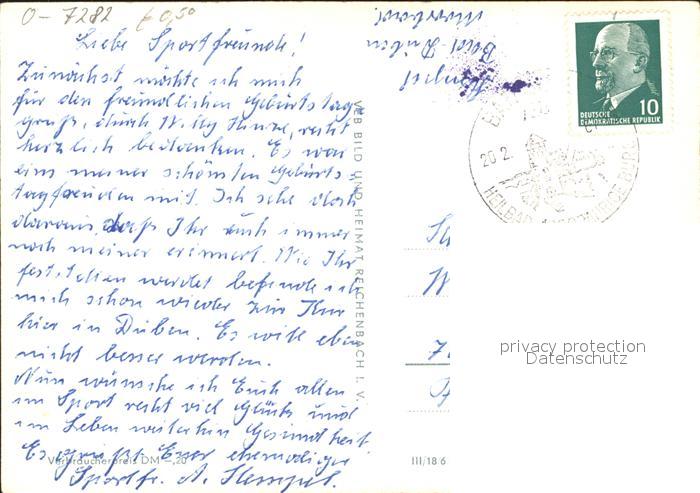 O-7282 € 0,50
Liebe Sportfreunde!
Zunächst möchte ich mich
für den freundlichen Geburtstag
gruß, durch Willy Kunze, recht
herzlich bedanken. Es war
ein meiner schönsten Geburts
tagfreuden mit. Ich sehe doch
daraus, daß Ihr auch immer
noch meiner erinnert. Wie Ihr
feststellen werdet befinde ich
mich schon wieder zur Kur
hier in Düben. Es will eben
nicht besser werden.
Nun wünsche ich Euch allen
im Sport recht viel Glück und
im Leben weiterhin Gesundheit.
Es grüßt Euer ehemaliger
Sportfr. A. Hempel.
Verbraucherpreis DM -,20
VEB BILD UND HEIMAT REICHENBACH I. V.
III/18 6
Hempel
Bad-Düben
Moorbad
DEUTSCHE
DEMOKRATISCHE REPUBLIK
10
20.2.
HEILBAD
BURG
privacy protection
Datenschutz